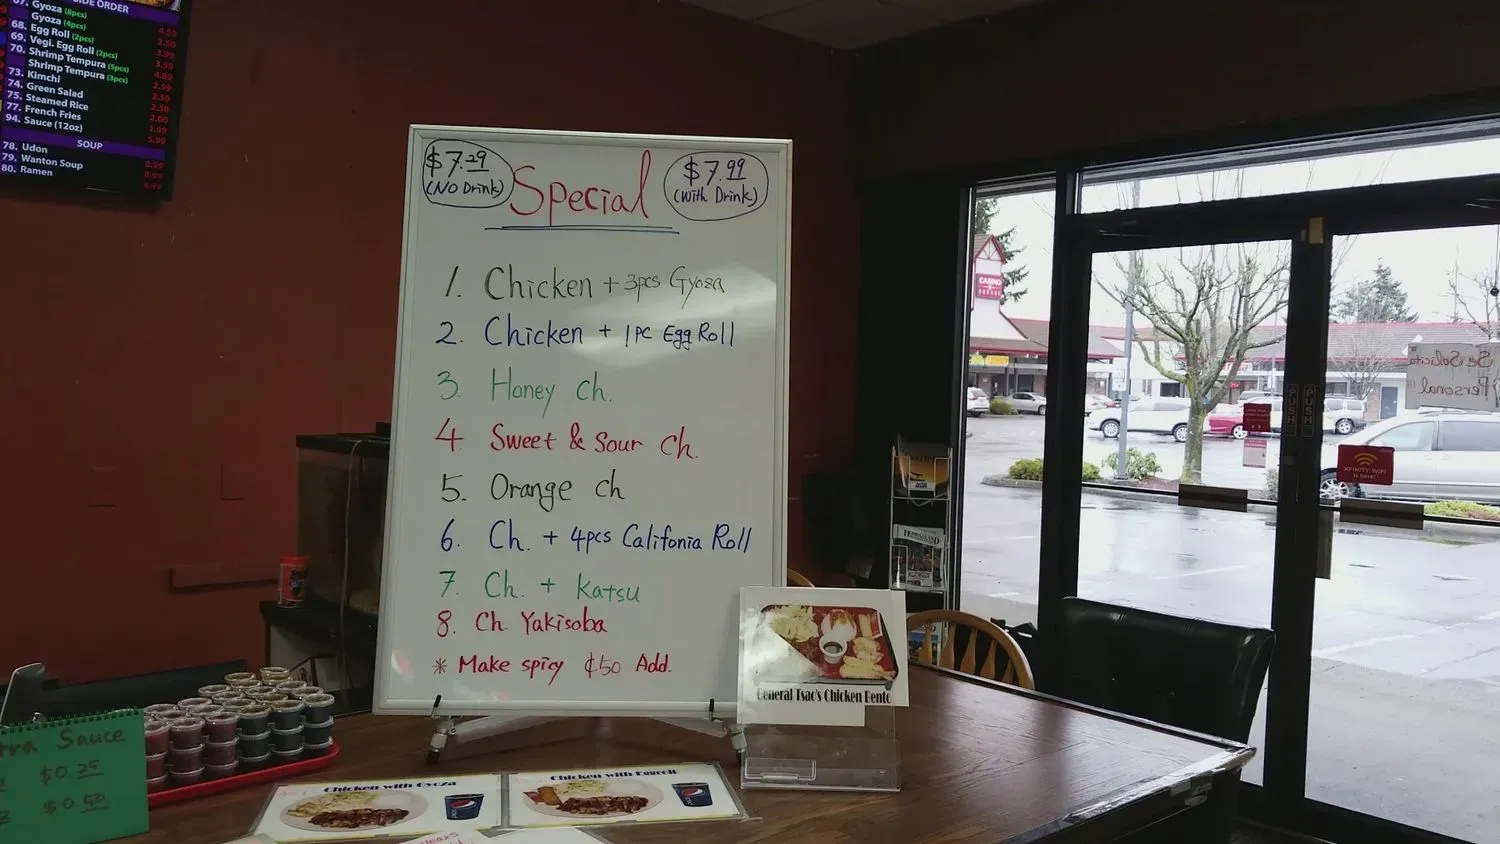 SIDE ORDER
67. Gyoza (8pcs)
Gyoza (4pcs) 4.50
68. Egg Roll (2pcs) 2.50
69. Vegi. Egg Roll (2pcs) 3.99
70. Shrimp Tempura (5pcs)
Shrimp Tempura (3pcs) 4.89
73. Kimchi 2.99
74. Green Salad 2.50
75. Steamed Rice 2.50
77. French Fries 2.00
94. Sauce (12oz) 1.99
5.99
SOUP
78. Udon
79. Wanton Soup 8.99
80. Ramen 8.99
$7.29
(No Drink)
Special
$7.99
(With Drink)
1. Chicken + 3pcs Gyoza
2. Chicken + 1PC Egg Roll
3. Honey Ch.
4 Sweet & Sour Ch.
5. Orange ch
6. Ch. + 4pcs Califonia Roll
7. Ch. + Katsu
8. Ch Yakisoba
* Make spicy ¢50 Add.
General Tsao's Chicken Bento
Chicken with Gyoza
Chicken with Eggroll
Sauce
$0.25
$0.50
CASINO
PUSH
PUSH
XFINITY WiFi
is here!
Se Solicita
Personal